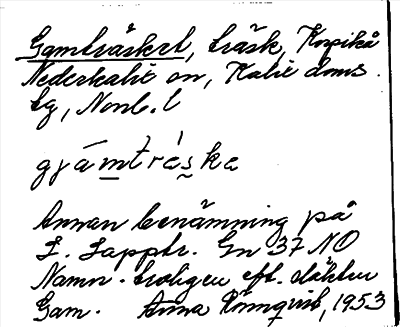 Gamträsket, träsk, Korpikå
Nederkalix sn, Kalix doms.
tg, Norrb. l
gjámtrǻska
Annan benämning på
L. Lapptr. Gn 37 NO
Namn troligen eft. släkten
Gam. Anna Rönnqvist, 1953